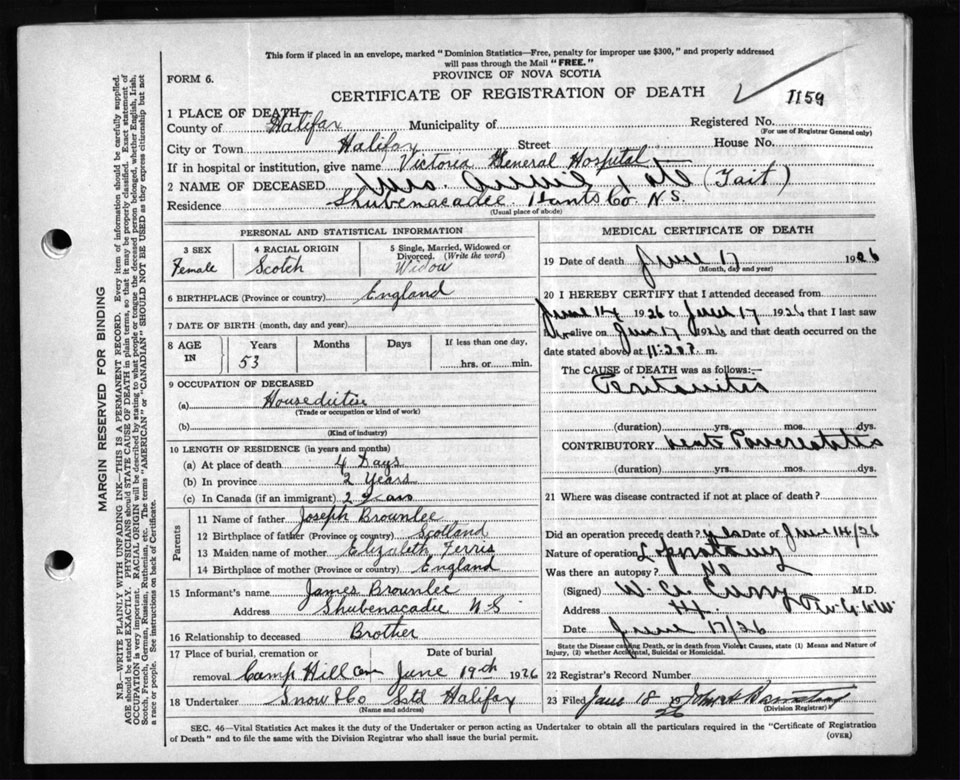 This form if placed in an envelope, marked "Dominion Statistics—Free, penalty for improper use $300," and properly addressed
will pass through the Mail "FREE."
FORM 6.
PROVINCE OF NOVA SCOTIA
CERTIFICATE OF REGISTRATION OF DEATH
1159
1 PLACE OF DEATH
County of Halifax Municipality of Registered No.
(For use of Registrar General only)
City or Town Halifax Street House No.
If in hospital or institution, give name Victoria General Hospital
2 NAME OF DECEASED Mrs. Annie Tate (Tait)
Residence Shubenacadie Hants Co. N.S.
(Usual place of abode)
PERSONAL AND STATISTICAL INFORMATION
3 SEX
Female
4 RACIAL ORIGIN
Scotch
5 Single, Married, Widowed or
Divorced. (Write the word)
Widow
6 BIRTHPLACE (Province or country) England
7 DATE OF BIRTH (month, day and year)
8 AGE IN Years Months Days If less than one day,
53 hrs. or min.
9 OCCUPATION OF DECEASED
(a) Houseduties
(Trade or occupation or kind of work)
(b)
(Kind of industry)
10 LENGTH OF RESIDENCE (in years and months)
(a) At place of death 4 Days
(b) In province 2 Years
(c) In Canada (if an immigrant) 2 Years
Parents
11 Name of father Joseph Brownlee
12 Birthplace of father (Province or country) Scotland
13 Maiden name of mother Elizabeth Ferris
14 Birthplace of mother (Province or country) England
15 Informant's name James Brownlee
Address Shubenacadie N.S
16 Relationship to deceased Brother
17 Place of burial, cremation or Date of burial
removal Camp Hill Cem June 19th 1926
18 Undertaker Snow & Co Ltd Halifax
(Name and address)
MEDICAL CERTIFICATE OF DEATH
19 Date of death June 17 1926
(Month, day and year)
20 I HEREBY CERTIFY that I attended deceased from
June 14 1926 to June 17 1926 that I last saw
alive on June 17 1926 and that death occurred on
date stated above, at 11.20 P. m.
The CAUSE of DEATH was as follows:—
Peritonitis
(duration) yrs. mos. dys.
CONTRIBUTORY. Acute Pancreatitis
(duration) yrs. mos. dys.
21 Where was disease contracted if not at place of death?
Did an operation precede death? yes Date of June 14/26
Nature of operation Laparotomy
Was there an autopsy? No
(Signed) W. A. Curry M.D.
Address Hx.
Date June 17/26
State the Disease causing Death, or in death from Violent Causes, state (1) Means and Nature of
Injury, (2) whether Accidental, Suicidal or Homicidal.
22 Registrar's Record Number
23 Filed June 18 26
(Division Registrar)
SEC. 46—Vital Statistics Act makes it the duty of the Undertaker or person acting as Undertaker to obtain all the particulars required in the "Certificate of Registration
of Death" and to file the same with the Division Registrar who shall issue the burial permit. (OVER)
MARGIN RESERVED FOR BINDING
N.B.—WRITE PLAINLY WITH UNFADING INK—THIS IS A PERMANENT RECORD. Every item of information should be carefully supplied.
AGE should be stated EXACTLY. PHYSICIANS should STATE CAUSE OF DEATH in plain terms, so that it may be properly classified. Exact statement of
OCCUPATION is very important. RACIAL ORIGIN will be described by stating to what people or tongue the deceased person belonged, whether English, Irish,
Scotch, French, German, Russian, Ruthenian, etc. The terms "AMERICAN" or "CANADIAN" SHOULD NOT BE USED as they express citizenship but not
a race or people. See instructions on back of Certificate.